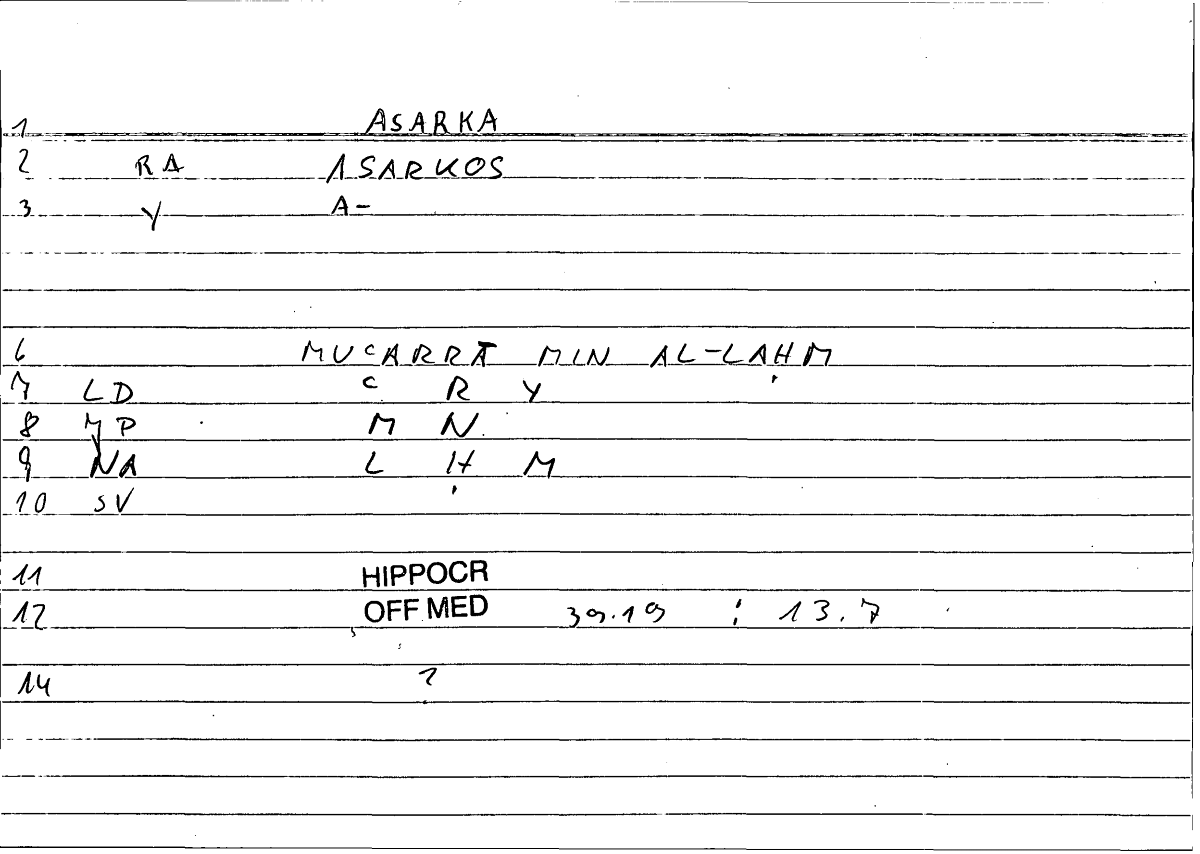 1 ASARKA
2 RA ASARKOS
3 Y A-
6 MUʿARRĀ MIN AL-LAḤM
7 LD ʿ R Y
8 YP M N
9 NA L Ḥ M
10 SV
11 HIPPOCR
12 OFF MED 39.19 : 13.7
14 ?